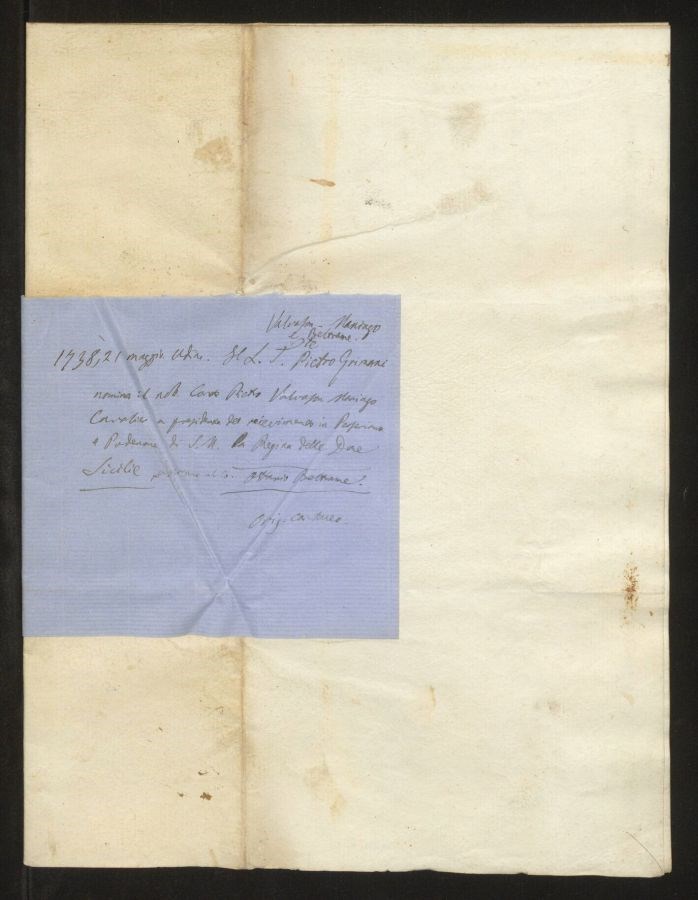 Valvason - Maniago
e Beltrame.
1738, 21 maggio Udine. Il L. T. Pietro Grimani
nomina il nob. Conte Pietro Valvason Maniago
a presidenza del ricevimento in
e Pordenone di S. M. la Regina delle Due
Sicilie al Co. Beltrame.
Orig. cartaceo.